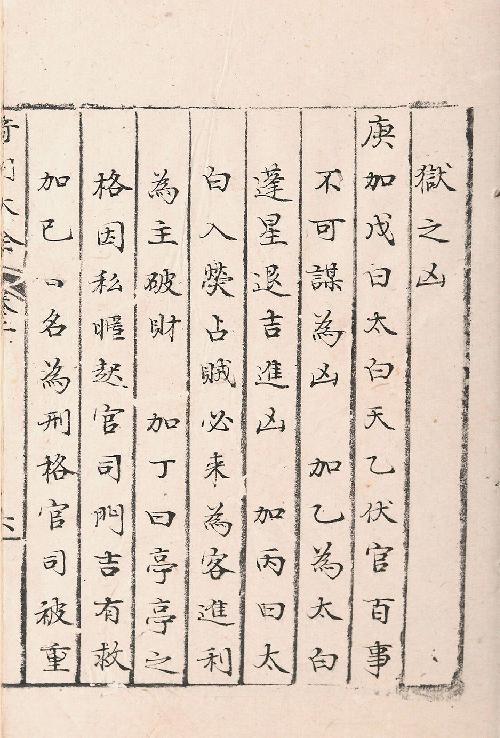 獄之凶
庚加戊曰太白天乙伏官百事
不可謀為凶　加乙為太白
蓬星退吉進凶　加丙曰太
白入熒占賊必来為客進利
為主破財　加丁曰亭亭之
格因私暱起官司門吉有救
加已　名為刑格官司被重